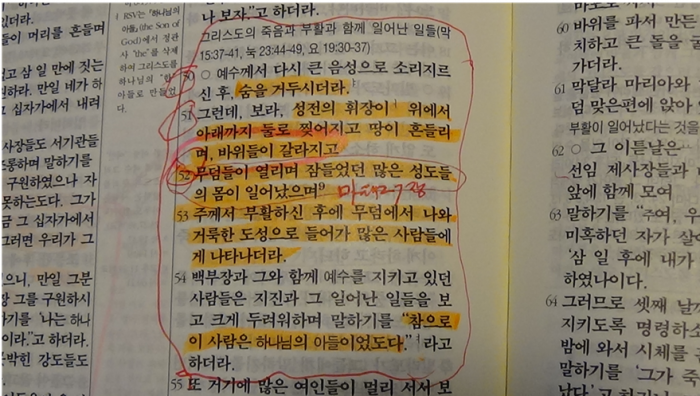 RSV는 「하나님의
아들」(the Son of
God)에서 정관
사 "the"를 삭제
하여 그리스도를
하나님의 「한
아들로 만들었
다.
들이 머리를 흔들며
십자가에서 내려
사장들도 서기관들
구원하였으나 자
못하는도다. 그가
금 그 십자가에서
그러면 우리가 그
만일 그분
그를 구원하시
하기를 '나는 하나
이라.'"고 하더라.
강도들도
나 보자."고 하더라.
그리스도의 죽음과 부활과 함께 일어난 일들(막
15:37-41, 눅 23:44-49, 요 19:30-37)
50 ○ 예수께서 다시 큰 음성으로 소리지르
신 후, 숨을 거두시더라.
51 그런데, 보라, 성전의 휘장이 위에서
아래까지 둘로 찢어지고 땅이 흔들리
며, 바위들이 갈라지고
52 무덤들이 열리며 잠들었던 많은 성도들
의 몸이 일어났으며
53 주께서 부활하신 후에 무덤에서 나와
거룩한 도성으로 들어가 많은 사람들에
게 나타나더라.
54 백부장과 그와 함께 예수를 지키고 있던
사람들은 지진과 그 일어난 일들을 보
고 크게 두려워하며 말하기를 "참으로
이 사람은 하나님의 아들이었도다."라고
하더라.
55 또 거기에 많은 여인들이 멀리 서서 보
60 바위를 파서 만든
치하고 큰 돌을 굴
가더라.
61 막달라 마리아와
덤 맞은편에 앉아
부활이 일어났다는 것을
62 ○ 그 이튿날은
선임 제사장들과
앞에 함께 모여
63 말하기를 "주여, 우
미혹하던 자가 살
'삼 일 후에 내가
하였나이다.
64 그러므로 셋째 날
지키도록 명령하소
밤에 와서 시체를
말하기를 '그가 죽